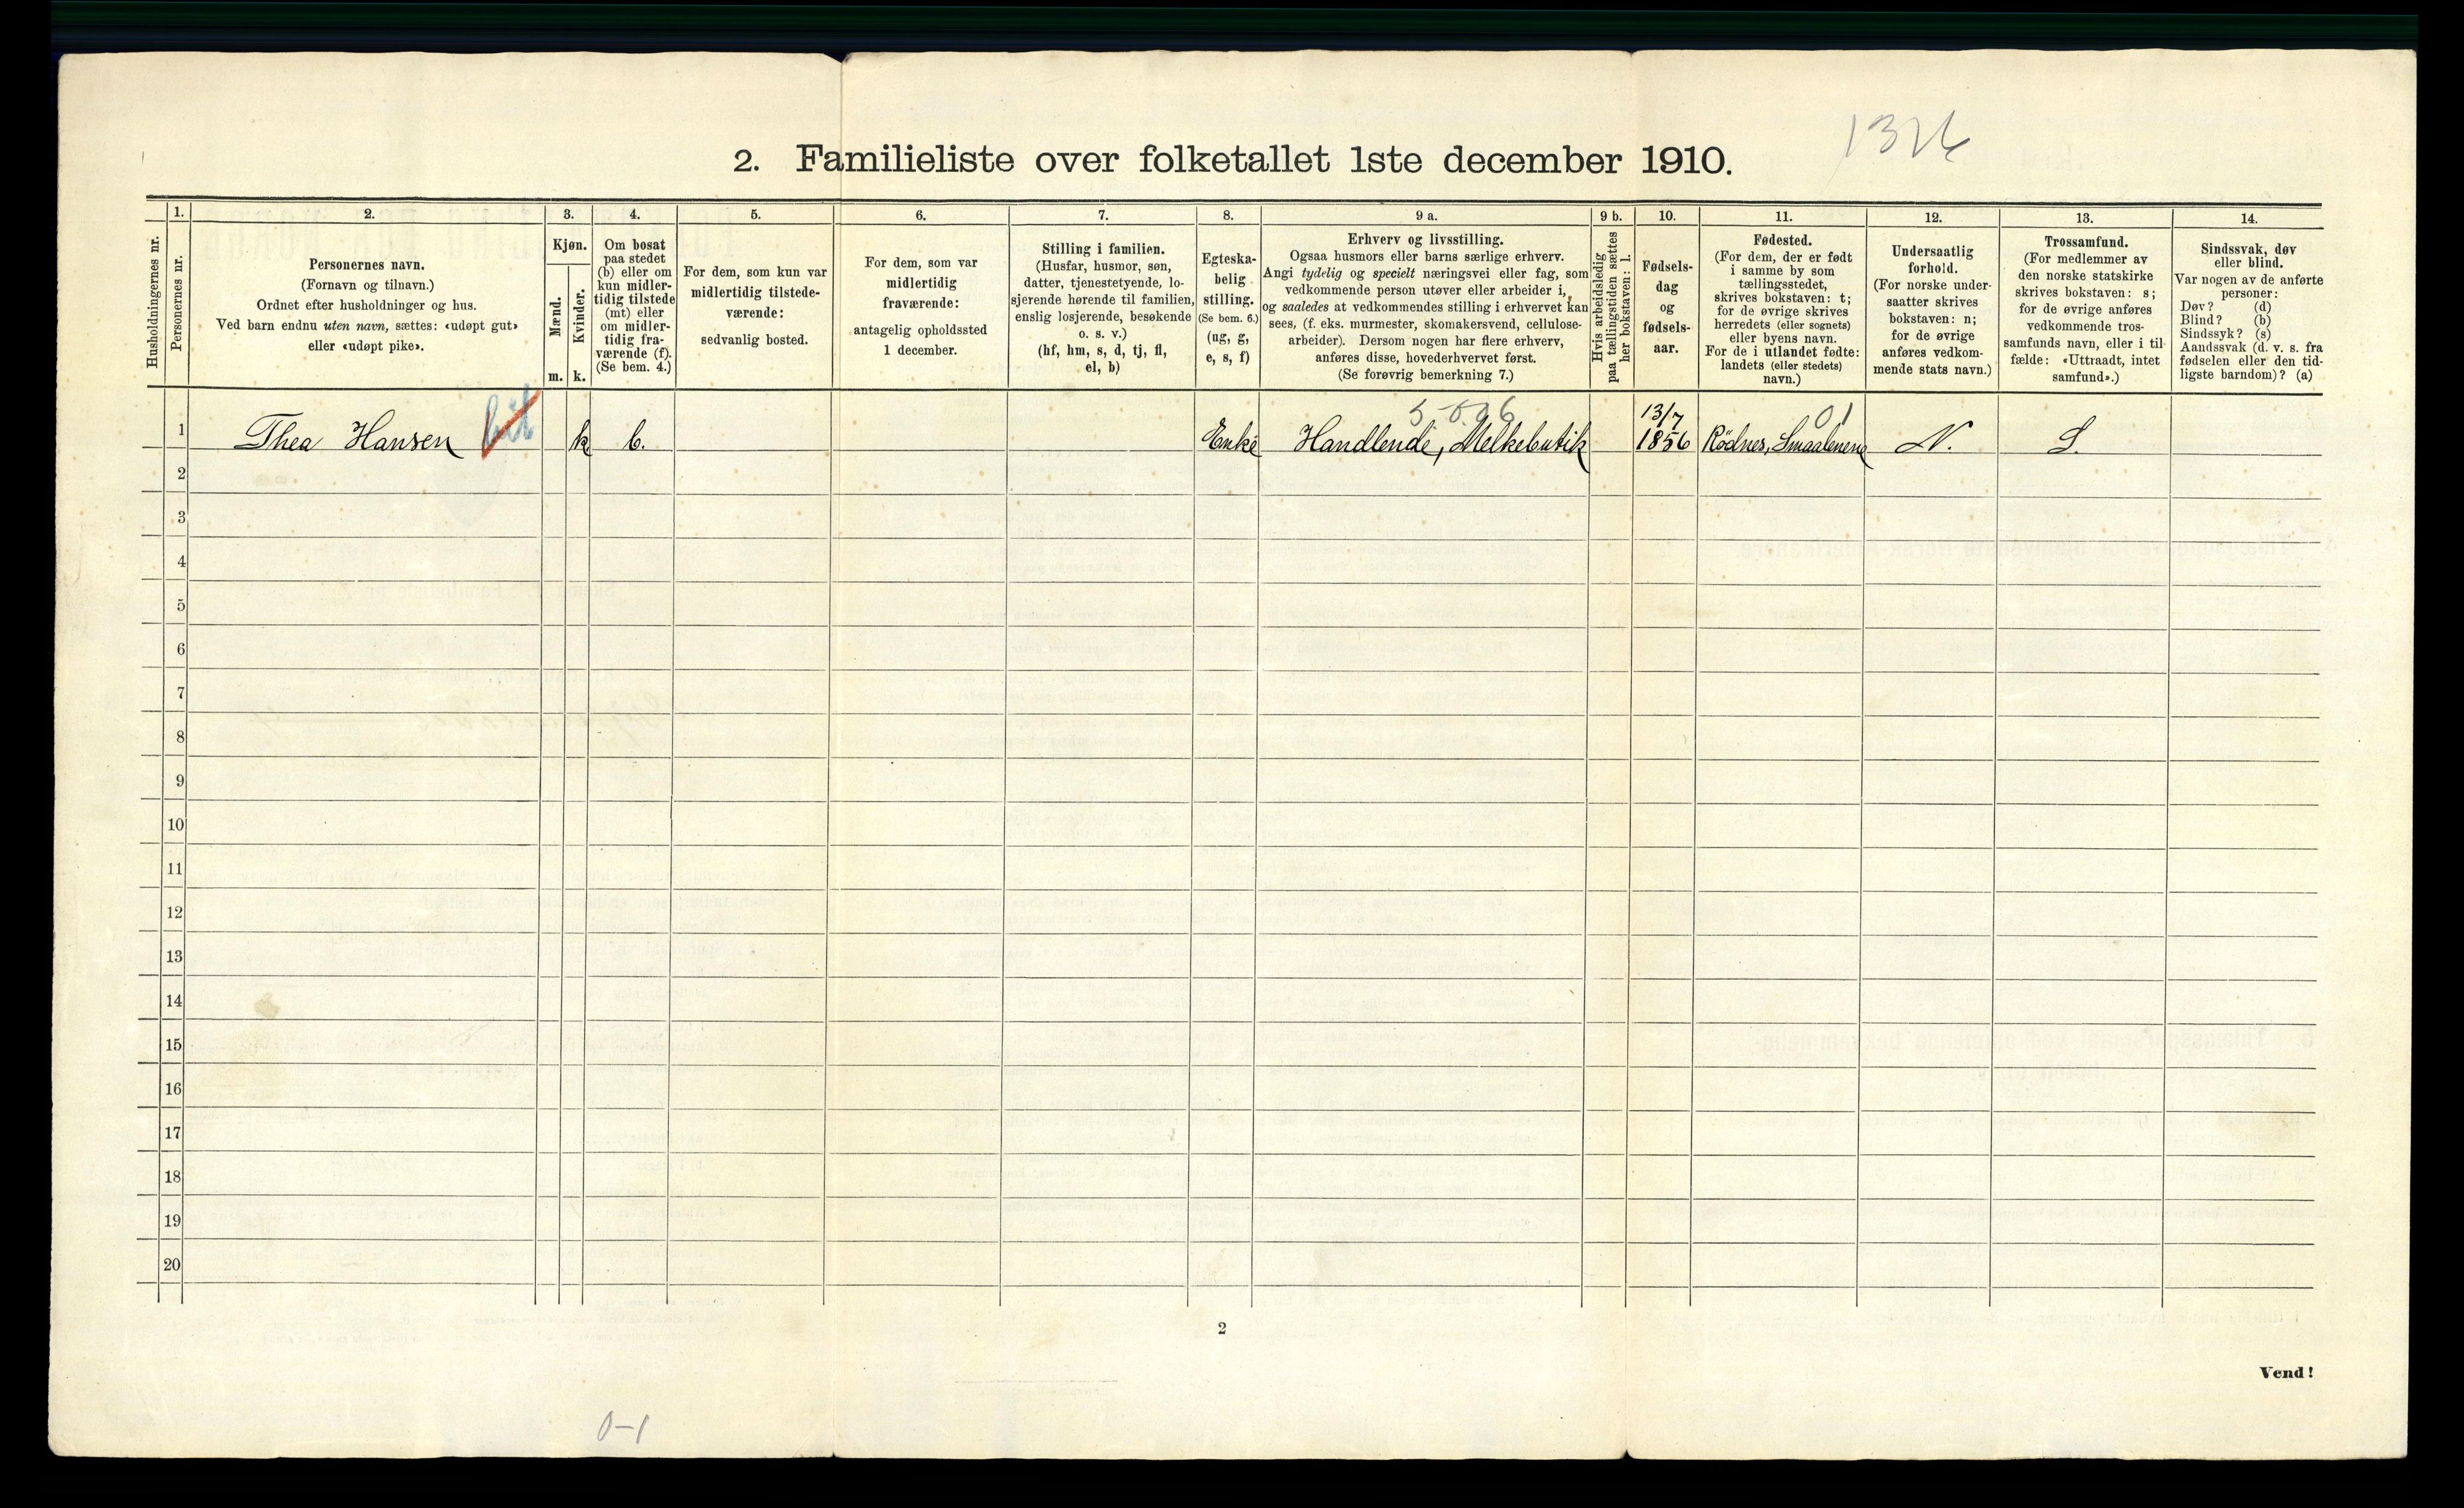 1326
2. Familieliste over folketallet 1ste december 1910.
Husholdningernes nr.
1.
Personernes nr.
2.
Personernes navn.
(Fornavn og tilnavn.)
Ordnet efter husholdninger og hus.
Ved barn endnu uten navn, sættes: «udøpt gut»
eller «udøpt pike».
3.
Kjøn.
Mænd.
m.
Kvinder.
k.
4.
Om bosat
paa stedet
(b) eller om
kun midler-
tidig tilstede
(mt) eller
om midler-
tidig fra-
værende (f).
(Se bem. 4.)
5.
For dem, som kun var
midlertidig tilstede-
værende:
sedvanlig bosted.
6.
For dem, som var
midlertidig
fraværende:
antagelig opholdssted
1 december.
7.
Stilling i familien.
(Husfar, husmor, søn,
datter, tjenestetyende, lo-
sjerende hørende til familien,
enslig losjerende, besøkende
o. s. v.)
(hf, hm, s, d, tj, fl,
el, b)
8.
Egteska-
belig
stilling.
(Se bem. 6.)
(ug, g,
e, s, f)
9 a.
Erhverv og livsstilling.
Ogsaa husmors eller barns særlige erhverv.
Angi tydelig og specielt næringsvei eller fag, som
vedkommende person utøver eller arbeider i,
og saaledes at vedkommendes stilling i erhvervet kan
sees, (f. eks. murmester, skomakersvend, cellulose-
arbeider). Dersom nogen har flere erhverv,
anføres disse, hovederhvervet først.
(Se forøvrig bemerkning 7.)
9 b.
Hvis arbeidsledig
paa tællingstiden sættes
her bokstaven: l.
10.
Fødsels-
dag
og
fødsels-
aar.
11.
Fødested.
(For dem, der er født
i samme by som
tællingsstedet,
skrives bokstaven: t;
for de øvrige skrives
herredets (eller sognets)
eller byens navn.
For de i utlandet fødte:
landets (eller stedets)
navn.)
12.
Undersaatlig
forhold.
(For norske under-
saatter skrives
bokstaven: n;
for de øvrige
anføres vedkom-
mende stats navn.)
13.
Trossamfund.
(For medlemmer av
den norske statskirke
skrives bokstaven: s;
for de øvrige anføres
vedkommende tros-
samfunds navn, eller i til-
fælde: «Uttraadt, intet
samfund».)
14.
Sindssvak, døv
eller blind.
Var nogen av de anførte
personer:
Døv? (d)
Blind? (b)
Sindssyk? (s)
Aandssvak (d. v. s. fra
fødselen eller den tid-
ligste barndom)? (a)
1 Thea Hansen k b. Enke Handlende, Melkebutik 13/7 1856 Rödnes, Smaalenene 01 N. S.
2
3
4
5
6
7
8
9
10
11
12
13
14
15
16
17
18
19
20
2
Vend!
0-1